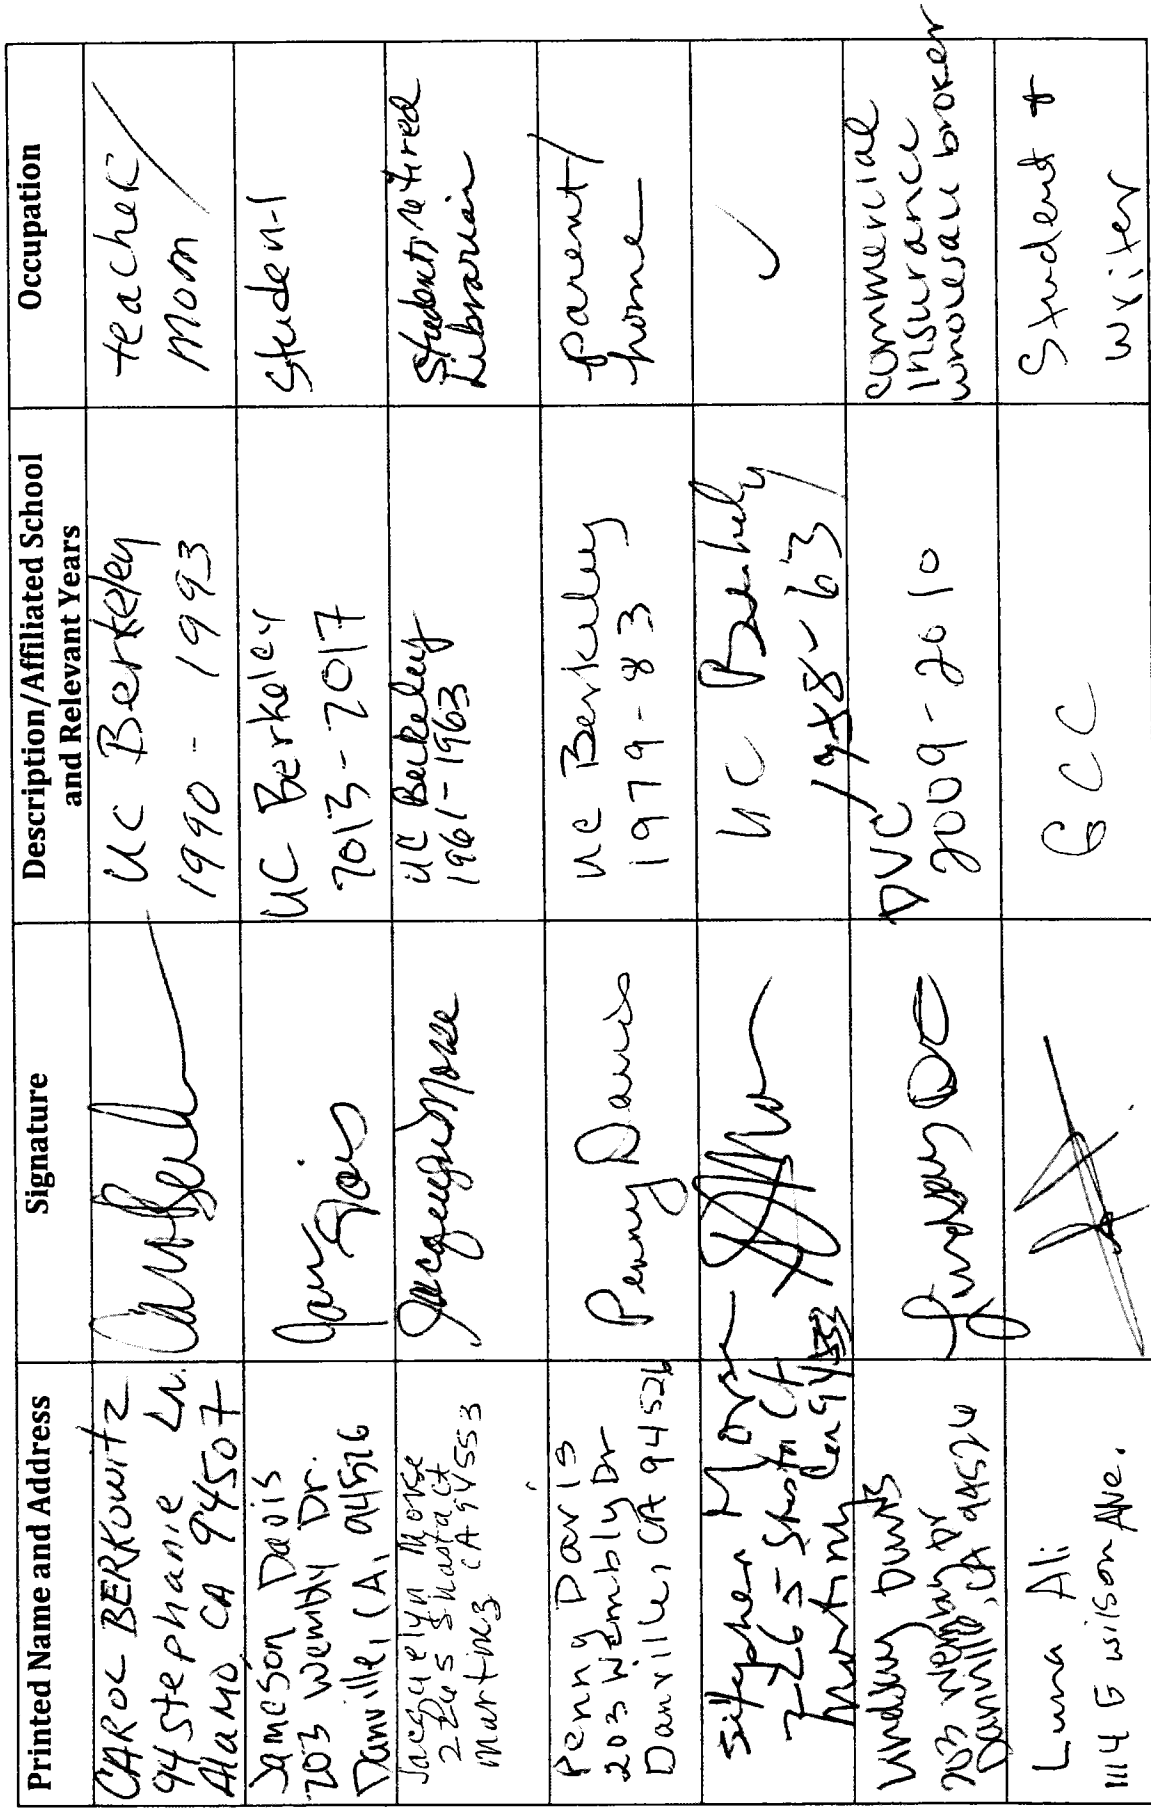 Printed Name and Address
Signature
Description/Affiliated School
and Relevant Years
Occupation
CAROL BERKOWITZ
94 Stephanie Ln.
Alamo, CA 94507
UC Berkeley
1990 - 1993
teacher/
mom
Jameson Davis
203 Wembly Dr.
Danville, CA, 94526
UC Berkeley
2013-2017
Student
Jacquelyn Morse
2265 Shasta Ct
Martinez CA 94553
Jacquelyn Morse
UC Berkeley
1961-1963
Student/retired
Librarian
Penny Davis
203 Wembly Dr
Danville, CA 94526
Penny Davis
UC Berkeley
1979-83
parent/
home
Stephen Morse
2265 Shasta Ct
Martinez Ca 94553
UC Berkeley
1958-63
✓
Lindsay Davis
203 Wembly Dr
Danville, CA 94526
Lindsay
DVC
2009-2010
commercial
insurance
wholesale broker
Luma Ali
1114 E Wilson Ave.
GCC
Student &
writer